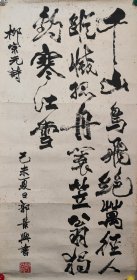 千山鸟飛絶萬徑人
踪滅孤舟蓑笠翁独
釣寒江雪
柳宗元詩
己未夏日郭喜興書